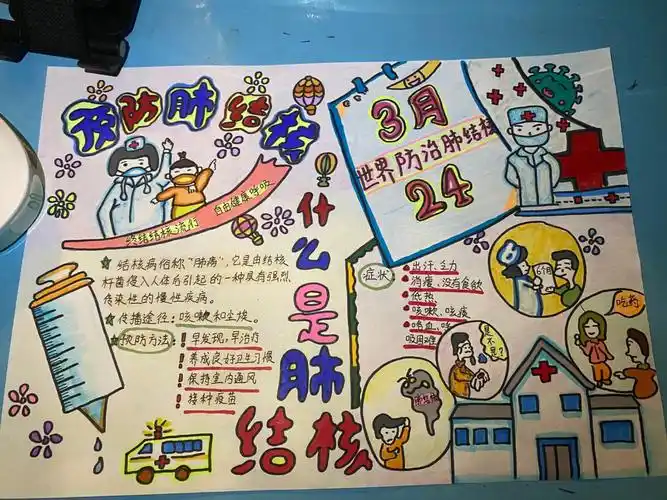 预防肺结核
终结结核流行 自由健康呼吸
3月
世界防治肺结核
24
什么是肺结核
★ 结核病俗称"肺痨",它是由结核
杆菌侵入人体后引起的一种具有强烈
传染性的慢性疾病。
★ 传播途径:咳嗽和尘埃。
★ 预防方法:! 早发现,早治疗
! 养成良好卫生习惯
! 保持室内通风
! 接种疫苗
症状
出汗、乏力
消瘦、没有食欲
低热
咳嗽、咳痰
咯血、
吸困难
6个月
是不是?
吃药